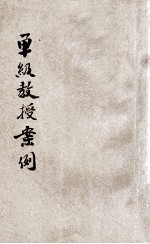 單級教授案例